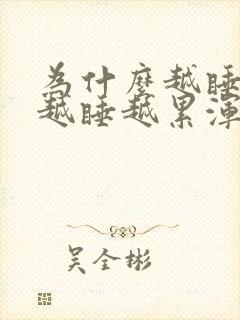 為什麼越睡
越睡越累渾
吳全彬